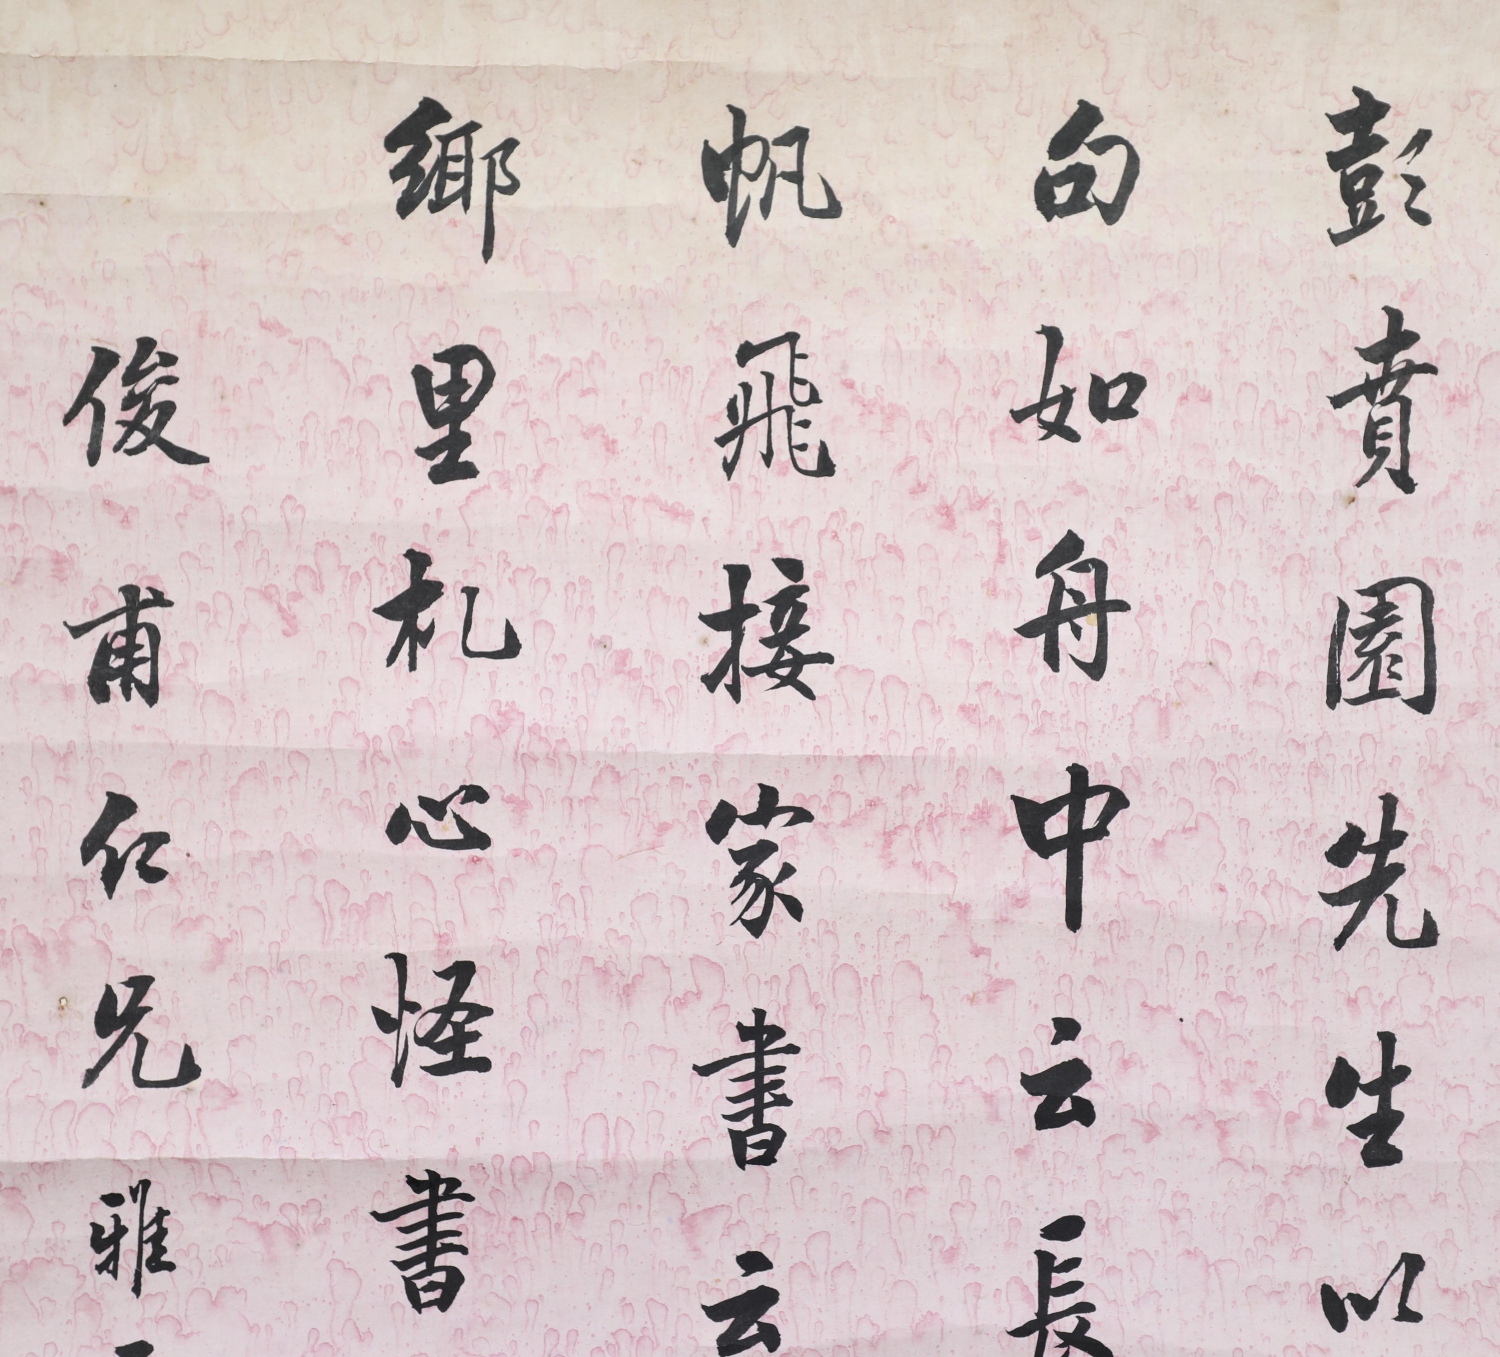 彭賁園先生以
句如舟中云長
帆飛接家書云
鄉里札心怪書
俊甫仁兄雅